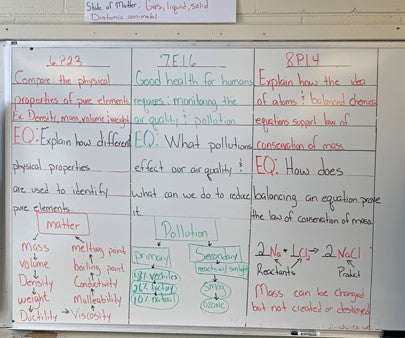 State of Matter: Gas, liquid, solid
Diatomic non-metal
6P23
Compare the physical
properties of pure elements
Ex. Density, mass, volume, weight
EQ: Explain how different
physical properties
are used to identify
pure elements
matter
mass
volume
Density
weight
Ductility → Viscosity
Malleability
Conductivity
boiling point
melting point
7E16
Good health for humans
requires: monitoring the
air quality & pollution
EQ: What pollutions
effect our air quality &
what can we do to reduce
it.
Pollution
primary
Secondary
reacts w/ sunlight
smog
ozone
10% natural
8P14
Explain how the idea
of atoms & balanced chemical
equations support law of
conservation of mass
EQ: How does
balancing an equation prove
the law of conservation of mass
2 Na + 1 Cl₂ → 2 NaCl
Reactants Product
Mass can be changed
but not created or destroyed